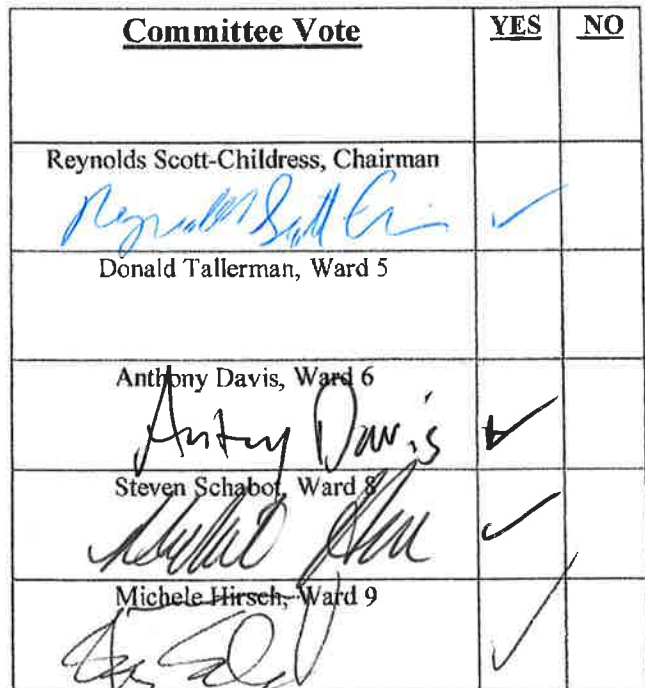 Committee Vote YES NO
Reynolds Scott-Childress, Chairman
Reynolds Scott ✓
Donald Tallerman, Ward 5
Anthony Davis, Ward 6
Antny Davis ✓
Steven Schabot, Ward 8
✓
Michele Hirsch, Ward 9
✓